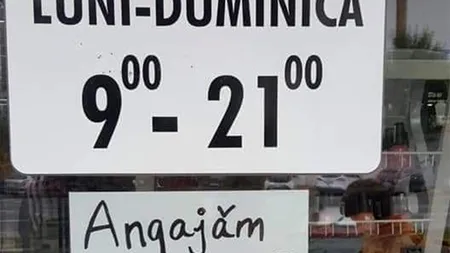 LUNI-DUMINICĂ
9⁰⁰ - 21⁰⁰
Angajăm